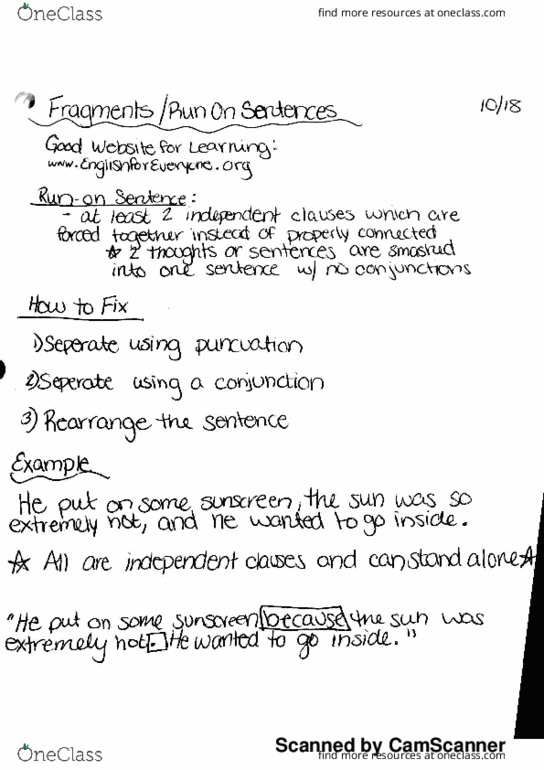 OneClass
find more resources at oneclass.com
Fragments/Run On Sentences
10/18
Good Website for Learning:
www.EnglishforEveryone.org
Run-on Sentence:
- at least 2 independent clauses which are
forced together instead of properly connected
☆ 2 thoughts or sentences are smashed
into one sentence w/ no conjunctions
How to Fix
1) Seperate using puncuation
2) Seperate using a conjunction
3) Rearrange the sentence
Example
He put on some sunscreen, the sun was so
extremely hot, and he wanted to go inside.
☆ All are independent clauses and can stand alone ☆
"He put on some sunscreen because the sun was
extremely hot. He wanted to go inside."
Scanned by CamScanner
OneClass
find more resources at oneclass.com